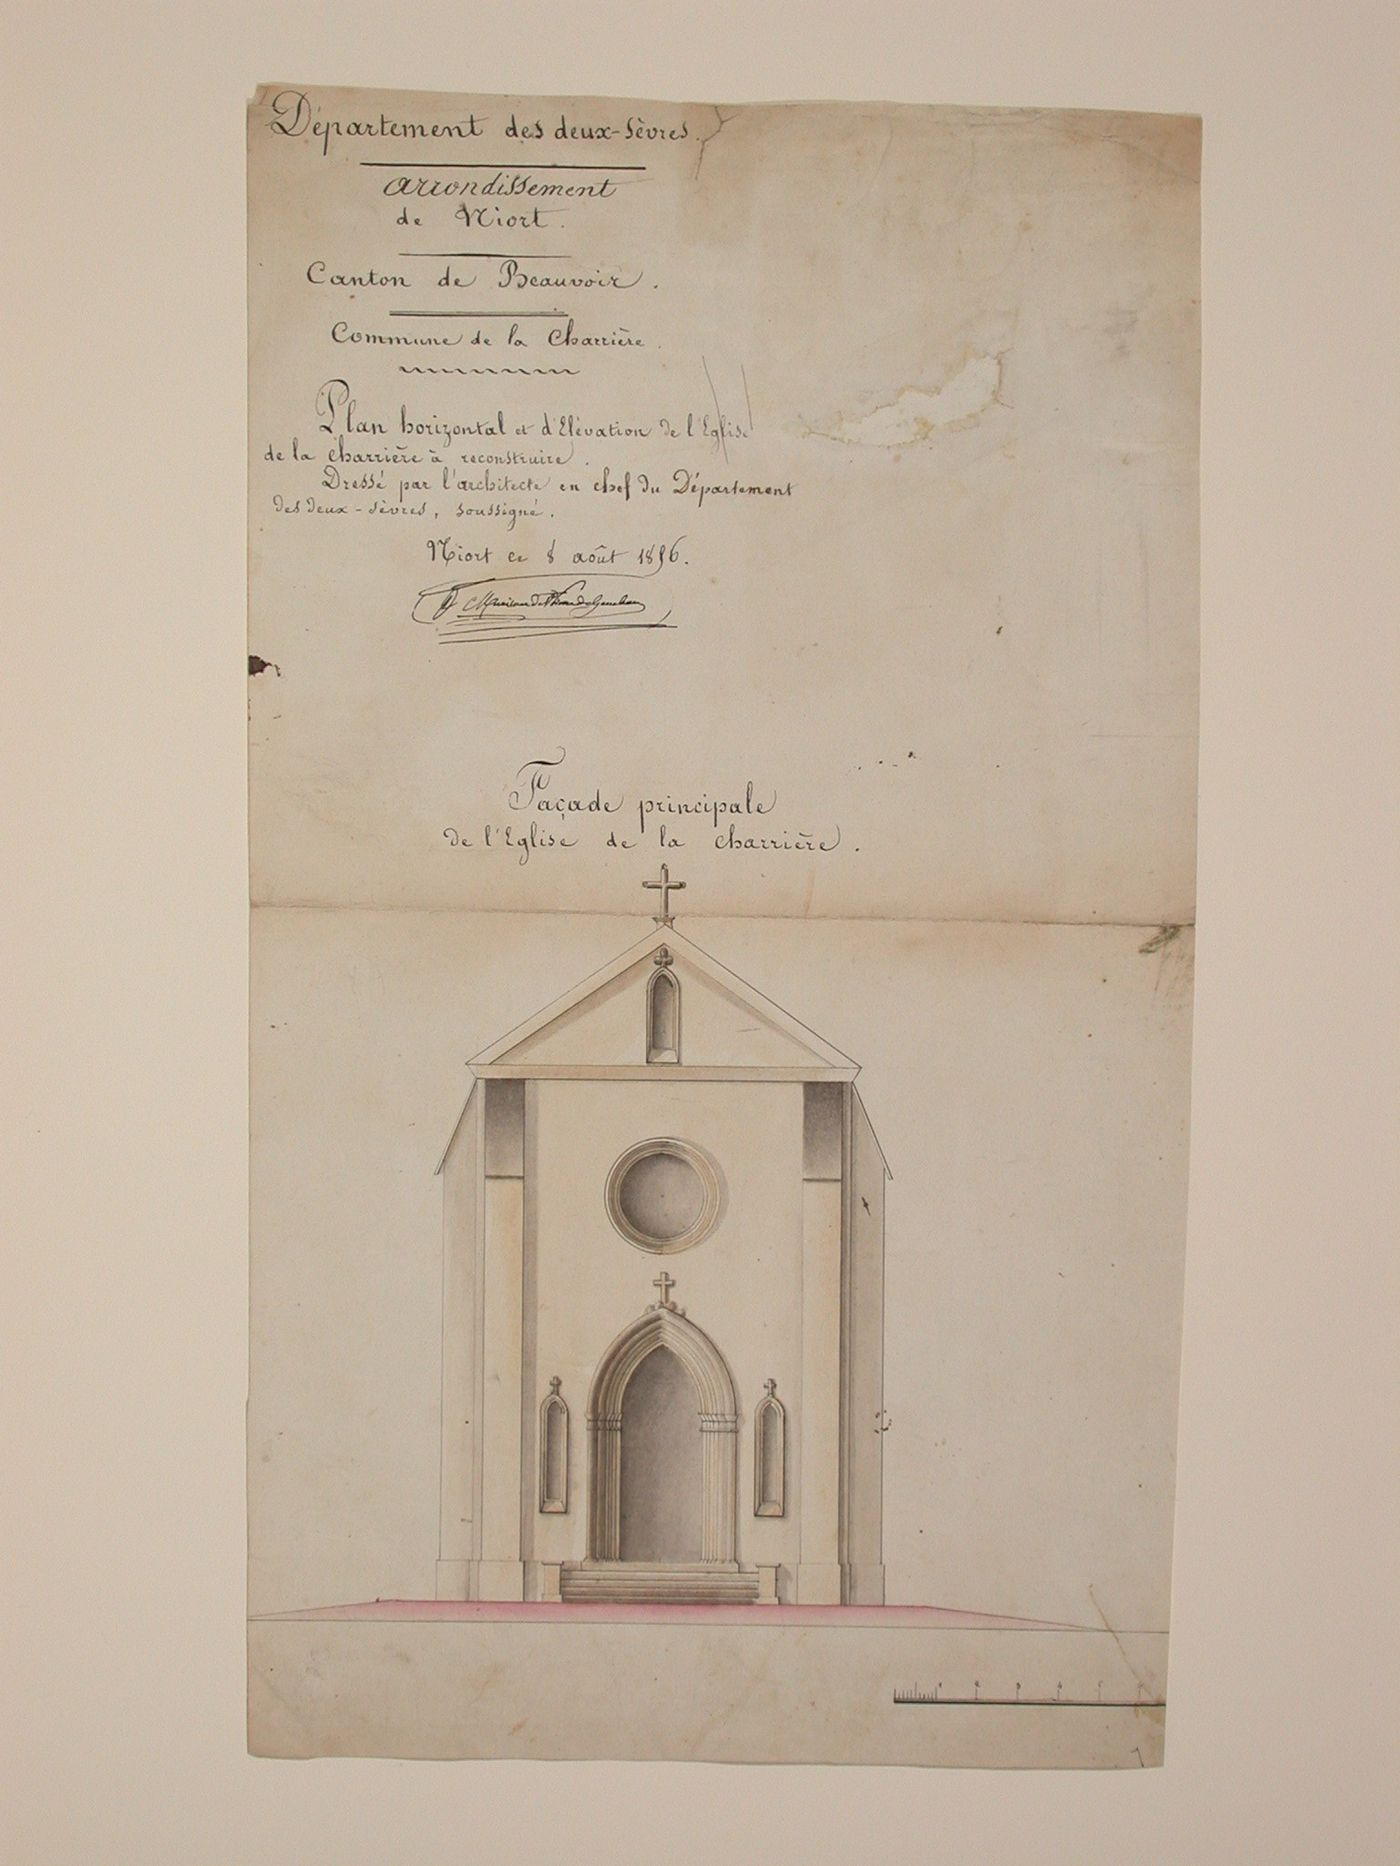 Département des deux-Sèvres.
arrondissement
de Niort.
Canton de Beauvoir.
Commune de la Charrière.
Plan horizontal et d'Elévation de l'Eglise
de la Charrière à reconstruire.
Dressé par l'architecte en chef du Département
des deux-sèvres, soussigné.
Niort ce 8 août 1856.
Façade principale
de l'Eglise de la charrière.